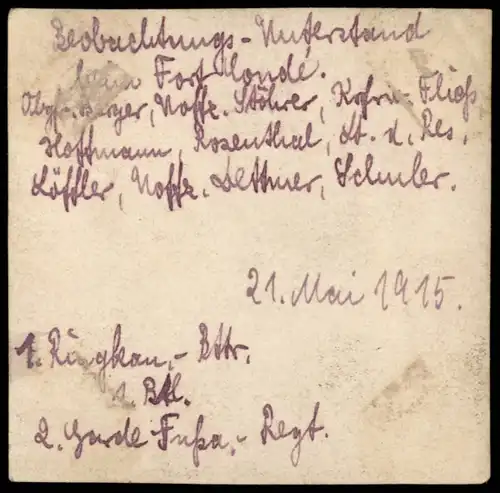 Beobachtungs-Unterstand
beim Fort Condé.
Obgfr. Burger, Uoffz. Stöhrer, Krfrw. Fließ
Hoffmann, Rosenthal, Lt. d. Res.
Löffler, Uoffz. Dettmer, Schuler.
21. Mai 1915.
1. Ringkan.- Bttr.
1. Btl.
2. Garde-Fußa.- Regt.